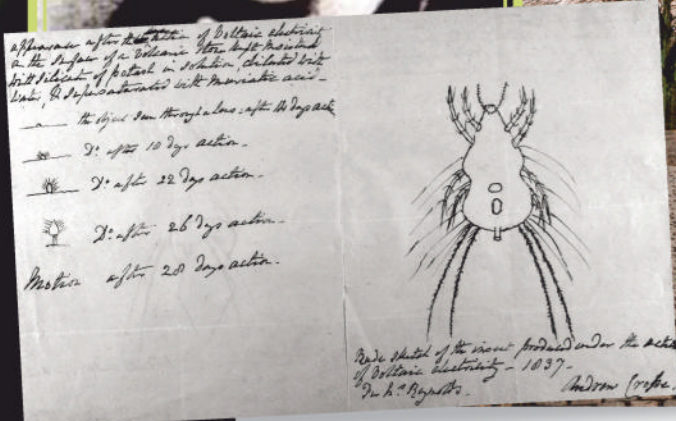 appearance after the action of Voltaic electricity
on the surface of a Volcanic Stone kept moistened
with silicate of potash in solution, diluted with
water, & supersaturated with Muriatic acid—
the object seen through a lens after 14 days action
Do after 18 days action.
Do after 22 days action.
Do after 26 days action.
Motion after 28 days action.
Rude sketch of the insect produced under the action
of Voltaic electricity — 1837.
Reynolds.
Andrew Crosse